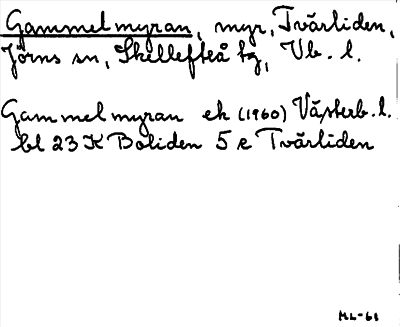 Gammelmyran, myr, Tvärliden,
Jörns sn, Skellefteå tg, Vb. l.
Gammelmyran ek (1960) Västerb. l.
bl 23 K Boliden 5 e Tvärliden
ML-61